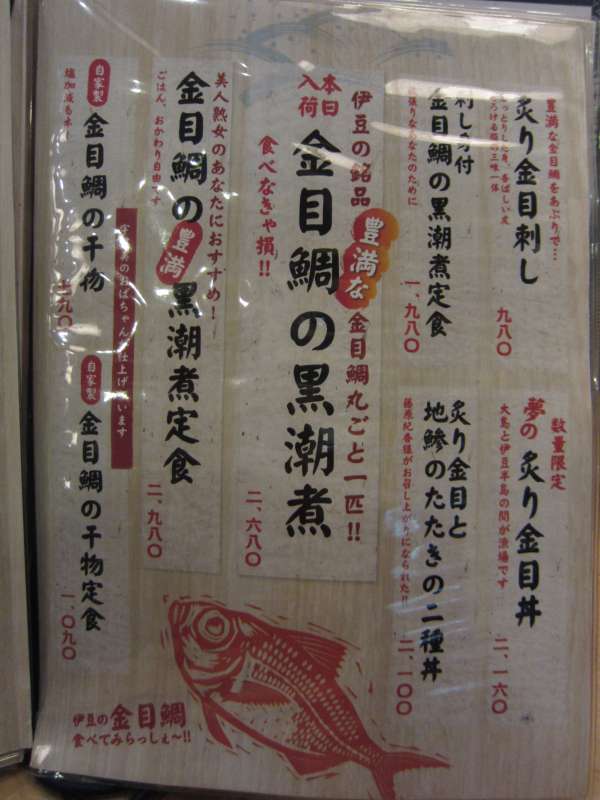 豊満な金目鯛をあぶりで…
炙り金目刺し
九八〇
数量限定
夢の炙り金目丼
大島と伊豆半島の間が漁場です
二、一六〇
刺し身付
金目鯛の黒潮煮定食
一、九八〇
炙り金目と
地鯵のたたきの二種丼
藤原紀香様がお召し上がりになられた!!
二、一〇〇
本日入荷
伊豆の銘品
豊満な
金目鯛丸ごと一匹!!
金目鯛の黒潮煮
食べなきゃ損!!
二、六八〇
美人熟女のあなたにおすすめ!
金目鯛の豊満黒潮煮定食
ごはん、おかわり自由です
二、九八〇
のおばちゃん
仕上げ
います
自家製
金目鯛の干物
塩加減も
九〇
自家製
金目鯛の干物定食
一、〇九〇
伊豆の金目鯛
食べてみらっしぇ〜!!